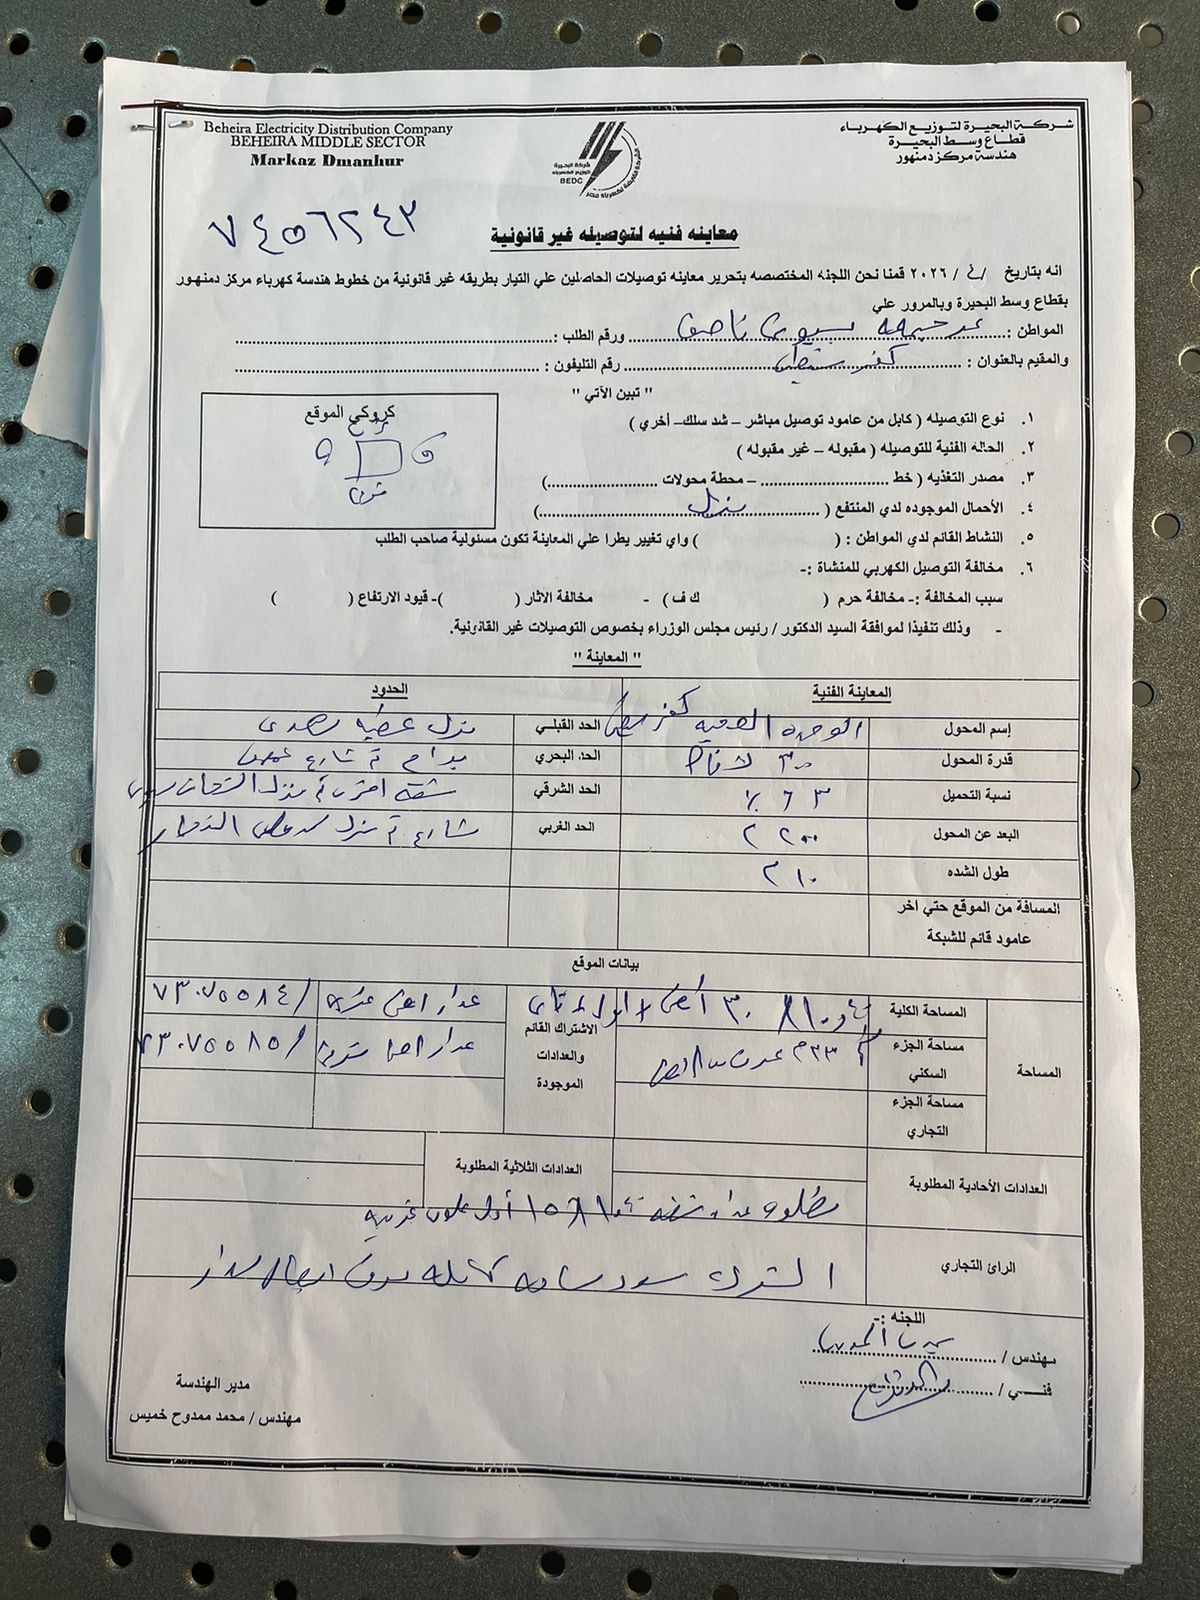 Beheira Electricity Distribution Company
BEHEIRA MIDDLE SECTOR
Markaz Dmanhur
شركة البحيرة لتوزيع الكهرباء
BEDC
شركة البحيرة لتوزيع الكهرباء
قطاع وسط البحيرة
هندسة مركز دمنهور
٧٤٥٦٢٤٣
معاينه فنيه لتوصيله غير قانونية
انه بتاريخ / / ٢٠٢٦ قمنا نحن اللجنه المختصصه بتحرير معاينه توصيلات الحاصلين علي التيار بطريقه غير قانونية من خطوط هندسة كهرباء مركز دمنهور
بقطاع وسط البحيرة وبالمرور علي
المواطن : بسيوني ورقم الطلب :
والمقيم بالعنوان : كفر رقم التليفون :
" تبين الآتي "
كروكي الموقع
١. نوع التوصيله ( كابل من عامود توصيل مباشر – شد سلك– أخري )
٢. الحاله الفنية للتوصيله ( مقبوله – غير مقبوله )
٣. مصدر التغذيه ( خط – محطة محولات )
٤. الأحمال الموجوده لدي المنتفع ( منزل )
٥. النشاط القائم لدي المواطن : ( ) واي تغيير يطرا علي المعاينة تكون مسئولية صاحب الطلب
٦. مخالفة التوصيل الكهربي للمنشاة :-
سبب المخالفة :- مخالفة حرم ( ك ف ) - مخالفة الاثار ( )- قيود الارتفاع ( )
- وذلك تنفيذا لموافقة السيد الدكتور / رئيس مجلس الوزراء بخصوص التوصيلات غير القانونية.
" المعاينة "
المعاينة الفنية الحدود
إسم المحول الوحدة الصحية كفر الحد القبلي منزل عطيه
قدرة المحول ٣٠٠ ك ف أ الحد البحري شارع
نسبة التحميل ٦٣ ٪ الحد الشرقي شقة اخرى ثم منزل
البعد عن المحول ٢٠٠ الحد الغربي شارع ثم منزل
طول الشده ١٠ م
المسافة من الموقع حتي اخر
عامود قائم للشبكة
بيانات الموقع
المساحة
المساحة الكلية
مساحة الجزء
السكني
مساحة الجزء
التجاري
الاشتراك القائم
والعدادات
الموجودة
عداد / ٧٣٠٧٥٥٨٤
عداد / ٧٣٠٧٥٥٨٥
العدادات الأحادية المطلوبة العدادات الثلاثية المطلوبة
مطلوب عداد شقة أول علوي غربيه
الرائ التجاري
اللجنه :-
مهندس /
فنسي /
مدير الهندسة
مهندس / محمد ممدوح خميس